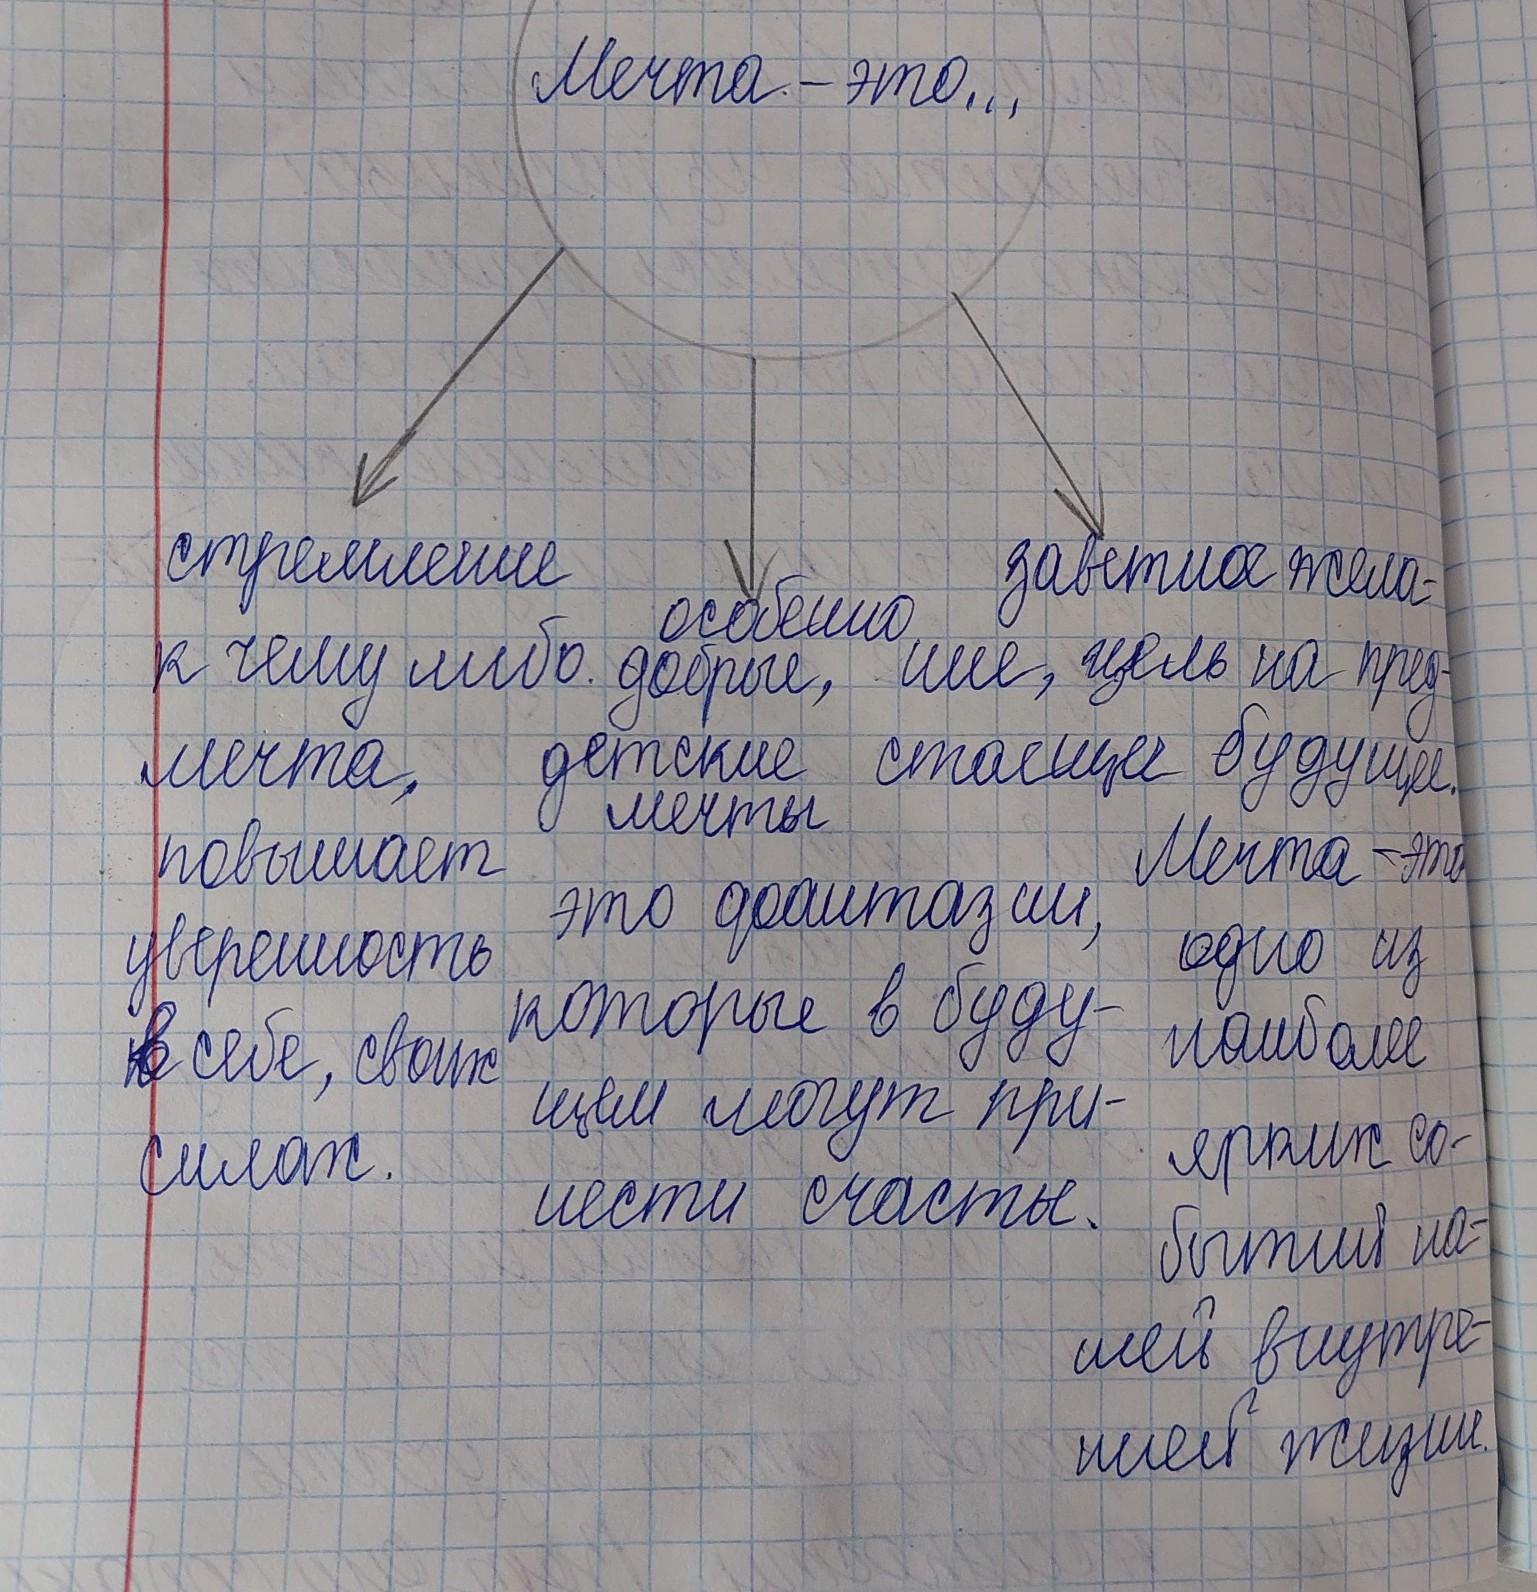 Мечта - это...
стремление
к чему либо.
мечта,
повышает
уверенность
в себе, своих
силах.
особенно
добрые,
детские
мечты
это фантазии,
которые в буду-
щем могут при-
нести счастье.
заветное жела-
ние, цель на пред-
стоящее будущее.
Мечта - это
одно из
наиболее
ярких со-
бытий на-
шей внутре-
нней жизни.